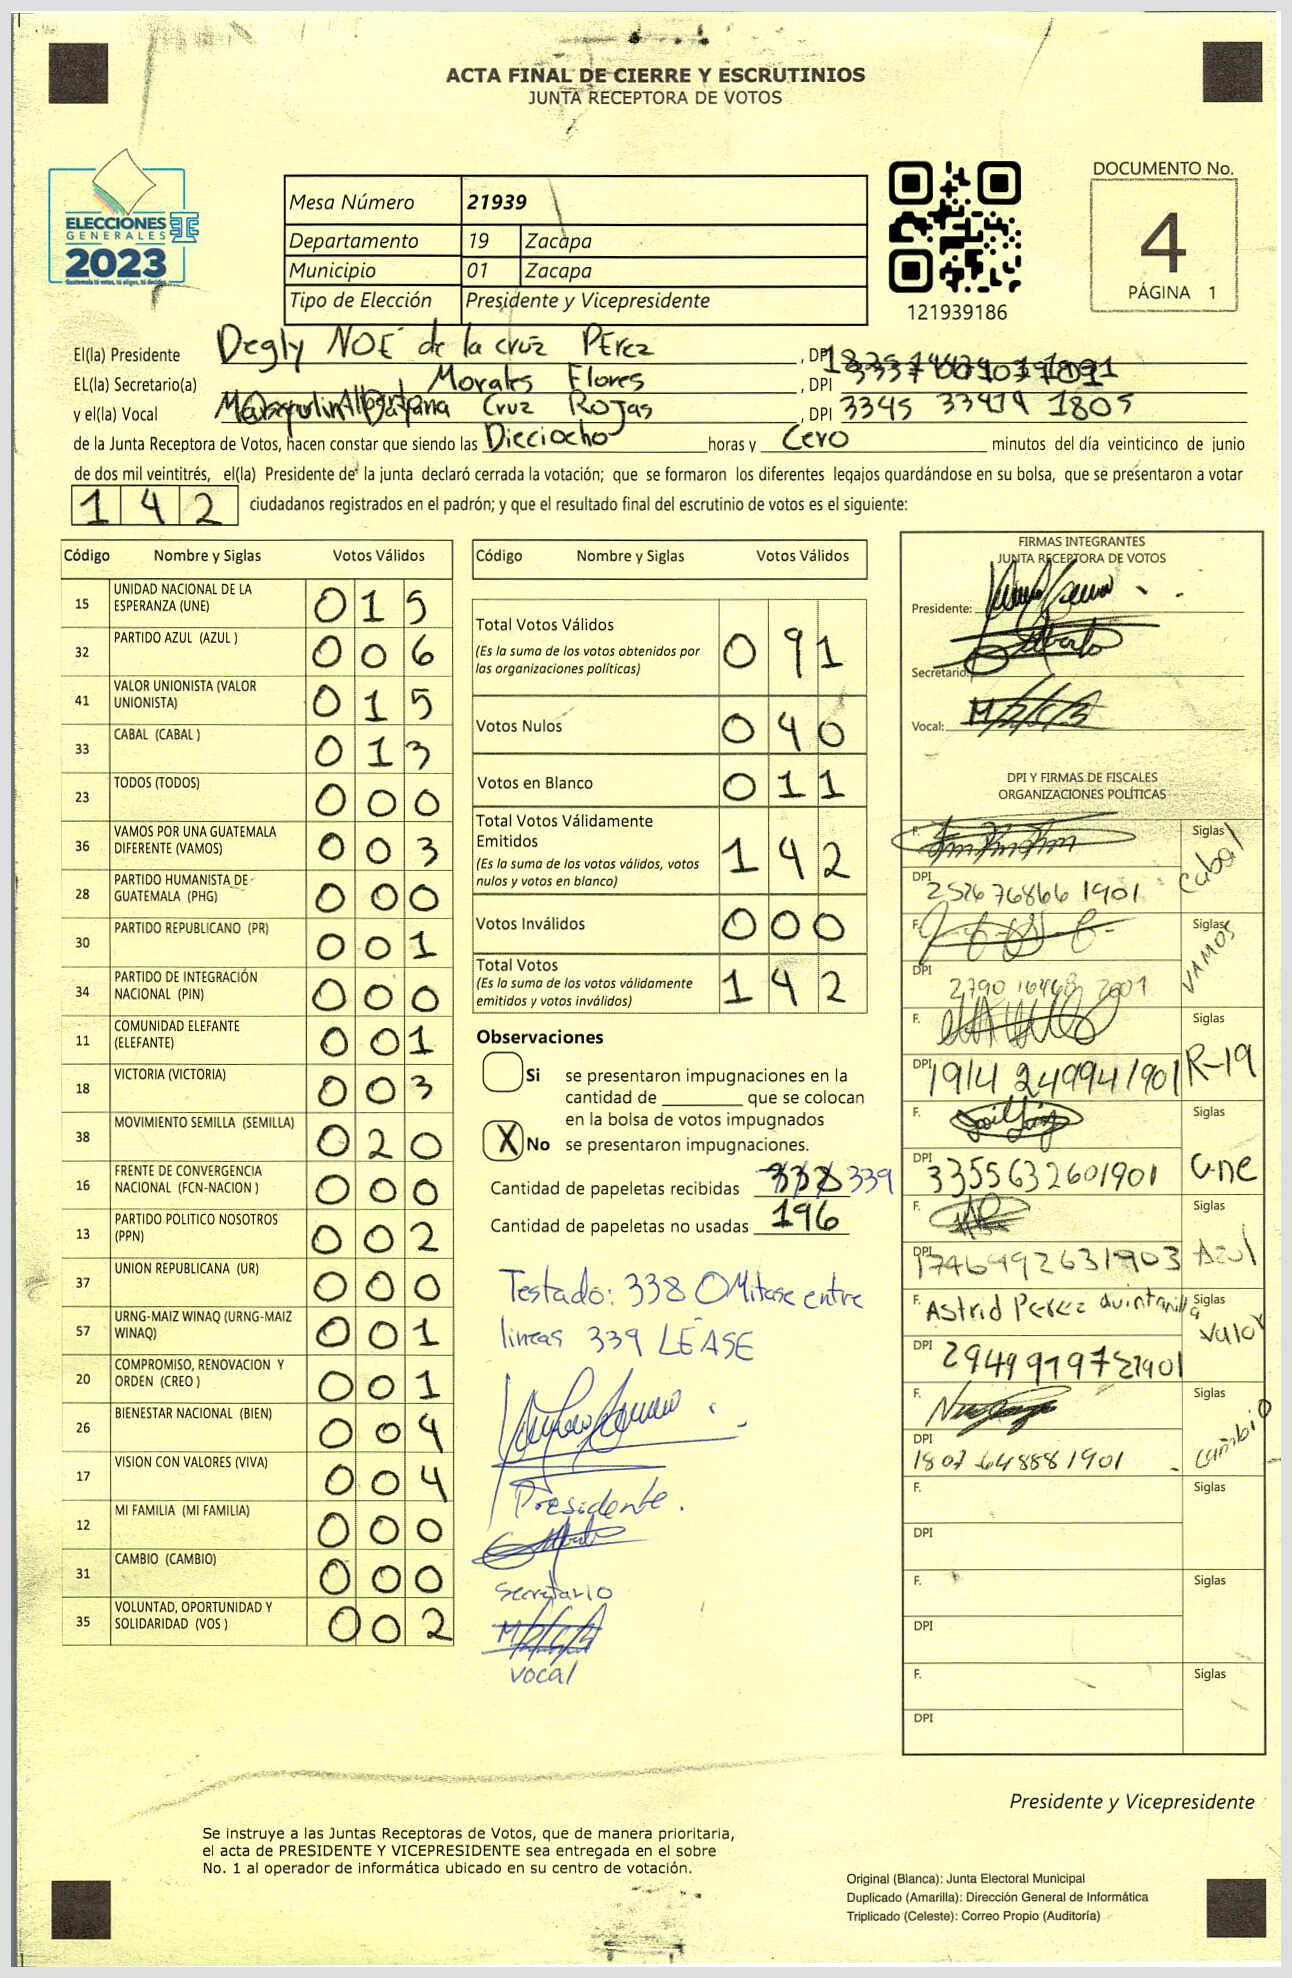 ACTA FINAL DE CIERRE Y ESCRUTINIOS
JUNTA RECEPTORA DE VOTOS
ELECCIONES
GENERALES
2023
Guatemala tú votas, tú eliges, tú decides
Mesa Número 21939
Departamento 19 Zacapa
Municipio 01 Zacapa
Tipo de Elección Presidente y Vicepresidente
121939186
DOCUMENTO No.
4
PÁGINA 1
El(la) Presidente Degly NOÉ de la cruz PErez, DPI
EL(la) Secretario(a) Morales Flores, DPI
y el(la) Vocal Cruz Rojas, DPI 3345 33419 1805
de la Junta Receptora de Votos, hacen constar que siendo las Dieciocho horas y Cero minutos del día veinticinco de junio
de dos mil veintitrés, el(la) Presidente de la junta declaró cerrada la votación; que se formaron los diferentes legajos quardándose en su bolsa, que se presentaron a votar
142 ciudadanos registrados en el padrón; y que el resultado final del escrutinio de votos es el siguiente:
Código Nombre y Siglas Votos Válidos
15 UNIDAD NACIONAL DE LA ESPERANZA (UNE) 015
32 PARTIDO AZUL (AZUL ) 006
41 VALOR UNIONISTA (VALOR UNIONISTA) 015
33 CABAL (CABAL ) 013
23 TODOS (TODOS) 000
36 VAMOS POR UNA GUATEMALA DIFERENTE (VAMOS) 003
28 PARTIDO HUMANISTA DE GUATEMALA (PHG) 000
30 PARTIDO REPUBLICANO (PR) 001
34 PARTIDO DE INTEGRACIÓN NACIONAL (PIN) 000
11 COMUNIDAD ELEFANTE (ELEFANTE) 001
18 VICTORIA (VICTORIA) 003
38 MOVIMIENTO SEMILLA (SEMILLA) 020
16 FRENTE DE CONVERGENCIA NACIONAL (FCN-NACION ) 000
13 PARTIDO POLITICO NOSOTROS (PPN) 002
37 UNION REPUBLICANA (UR) 000
57 URNG-MAIZ WINAQ (URNG-MAIZ WINAQ) 001
20 COMPROMISO, RENOVACION Y ORDEN (CREO ) 001
26 BIENESTAR NACIONAL (BIEN) 004
17 VISION CON VALORES (VIVA) 004
12 MI FAMILIA (MI FAMILIA) 000
31 CAMBIO (CAMBIO) 000
35 VOLUNTAD, OPORTUNIDAD Y SOLIDARIDAD (VOS ) 002
Código Nombre y Siglas Votos Válidos
Total Votos Válidos 091
(Es la suma de los votos obtenidos por
las organizaciones políticas)
Votos Nulos 040
Votos en Blanco 011
Total Votos Válidamente
Emitidos 142
(Es la suma de los votos válidos, votos
nulos y votos en blanco)
Votos Inválidos 000
Total Votos 142
(Es la suma de los votos válidamente
emitidos y votos inválidos)
Observaciones
Si se presentaron impugnaciones en la
cantidad de ________ que se colocan
en la bolsa de votos impugnados
X No se presentaron impugnaciones.
Cantidad de papeletas recibidas 338 339
Cantidad de papeletas no usadas 196
Testado: 338 OMitase entre
lineas 339 LEASE
Presidente.
Secretario
vocal
FIRMAS INTEGRANTES
JUNTA RECEPTORA DE VOTOS
Presidente:
Secretario:
Vocal:
DPI Y FIRMAS DE FISCALES
ORGANIZACIONES POLÍTICAS
F. Siglas cabal
DPI 2526 76866 1901
F. Siglas VAMOS
DPI
F. Siglas R-19
DPI 1914 24994 1901
F. Siglas Une
DPI 3355632601901
F. Siglas Azul
DPI 1746992631903
F. Astrid Perez Quintanilla Siglas Valor
DPI
F. Siglas cambio
DPI 1807 64888 1901
F. Siglas
DPI
F. Siglas
DPI
F. Siglas
DPI
Presidente y Vicepresidente
Se instruye a las Juntas Receptoras de Votos, que de manera prioritaria,
el acta de PRESIDENTE Y VICEPRESIDENTE sea entregada en el sobre
No. 1 al operador de informática ubicado en su centro de votación.
Original (Blanca): Junta Electoral Municipal
Duplicado (Amarilla): Dirección General de Informática
Triplicado (Celeste): Correo Propio (Auditoría)